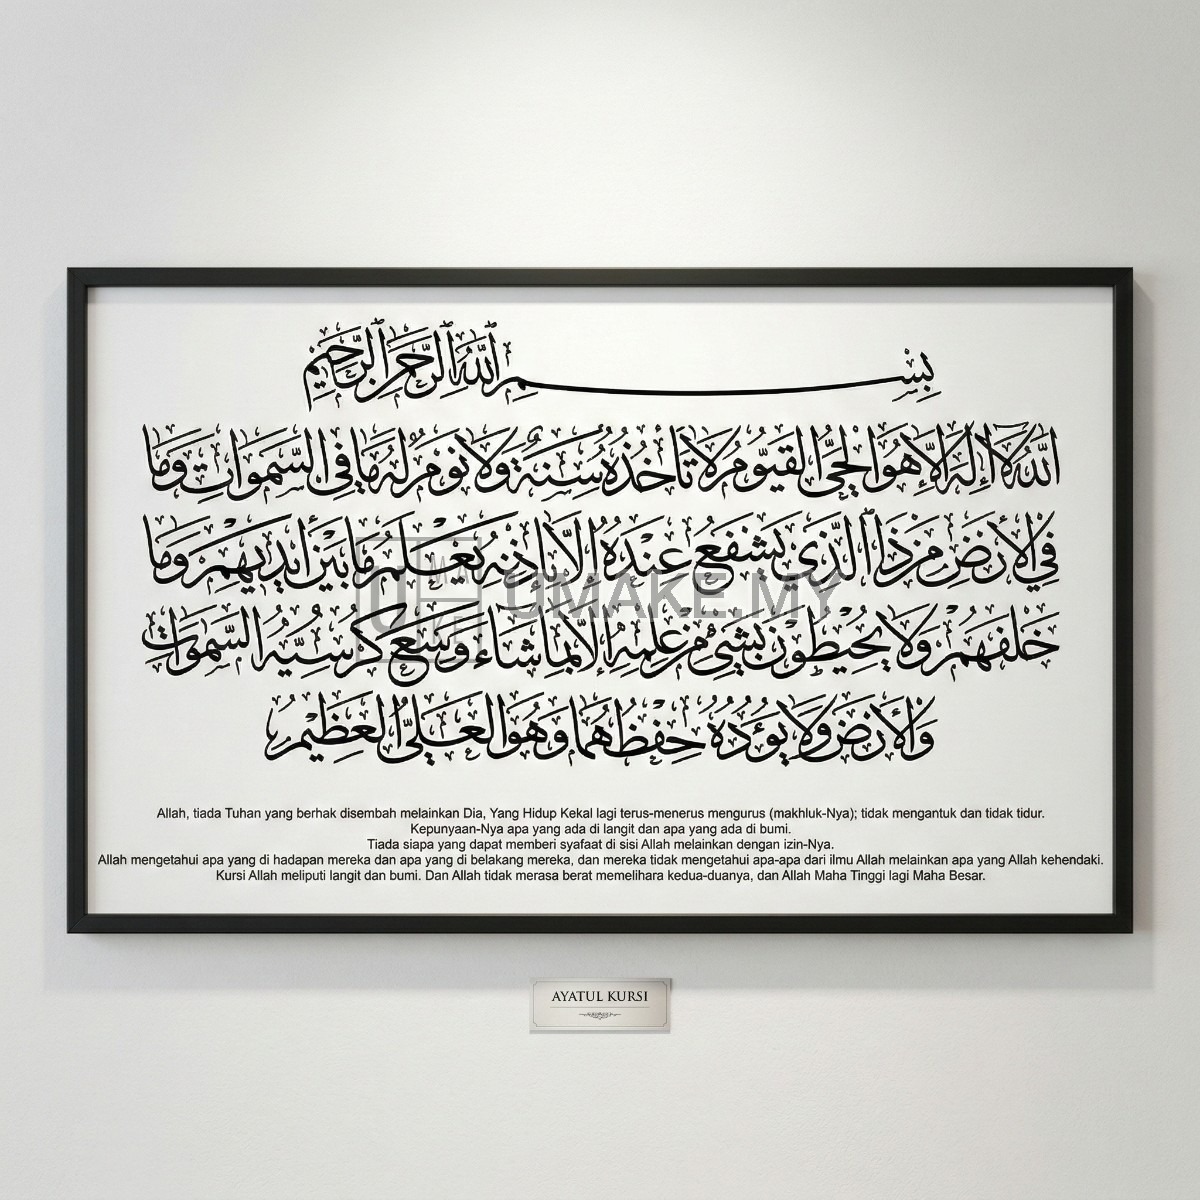 بِسْمِ اللهِ الرَّحْمٰنِ الرَّحِيْمِ
اَللهُ لَا إِلٰهَ إِلَّا هُوَ الْحَيُّ الْقَيُّوْمُ لَا تَأْخُذُهُ سِنَةٌ وَلَا نَوْمٌ لَهُ مَا فِي السَّمٰوَاتِ وَمَا
فِي الْأَرْضِ مَنْ ذَا الَّذِي يَشْفَعُ عِنْدَهُ إِلَّا بِإِذْنِهِ يَعْلَمُ مَا بَيْنَ أَيْدِيْهِمْ وَمَا
خَلْفَهُمْ وَلَا يُحِيْطُوْنَ بِشَيْءٍ مِنْ عِلْمِهِ إِلَّا بِمَا شَاءَ وَسِعَ كُرْسِيُّهُ السَّمٰوَاتِ
وَالْأَرْضَ وَلَا يَؤُدُهُ حِفْظُهُمَا وَهُوَ الْعَلِيُّ الْعَظِيْمُ
UMAKE.MY
Allah, tiada Tuhan yang berhak disembah melainkan Dia, Yang Hidup Kekal lagi terus-menerus mengurus (makhluk-Nya); tidak mengantuk dan tidak tidur.
Kepunyaan-Nya apa yang ada di langit dan apa yang ada di bumi.
Tiada siapa yang dapat memberi syafaat di sisi Allah melainkan dengan izin-Nya.
Allah mengetahui apa yang di hadapan mereka dan apa yang di belakang mereka, dan mereka tidak mengetahui apa-apa dari ilmu Allah melainkan apa yang Allah kehendaki.
Kursi Allah meliputi langit dan bumi. Dan Allah tidak merasa berat memelihara kedua-duanya, dan Allah Maha Tinggi lagi Maha Besar.
AYATUL KURSI